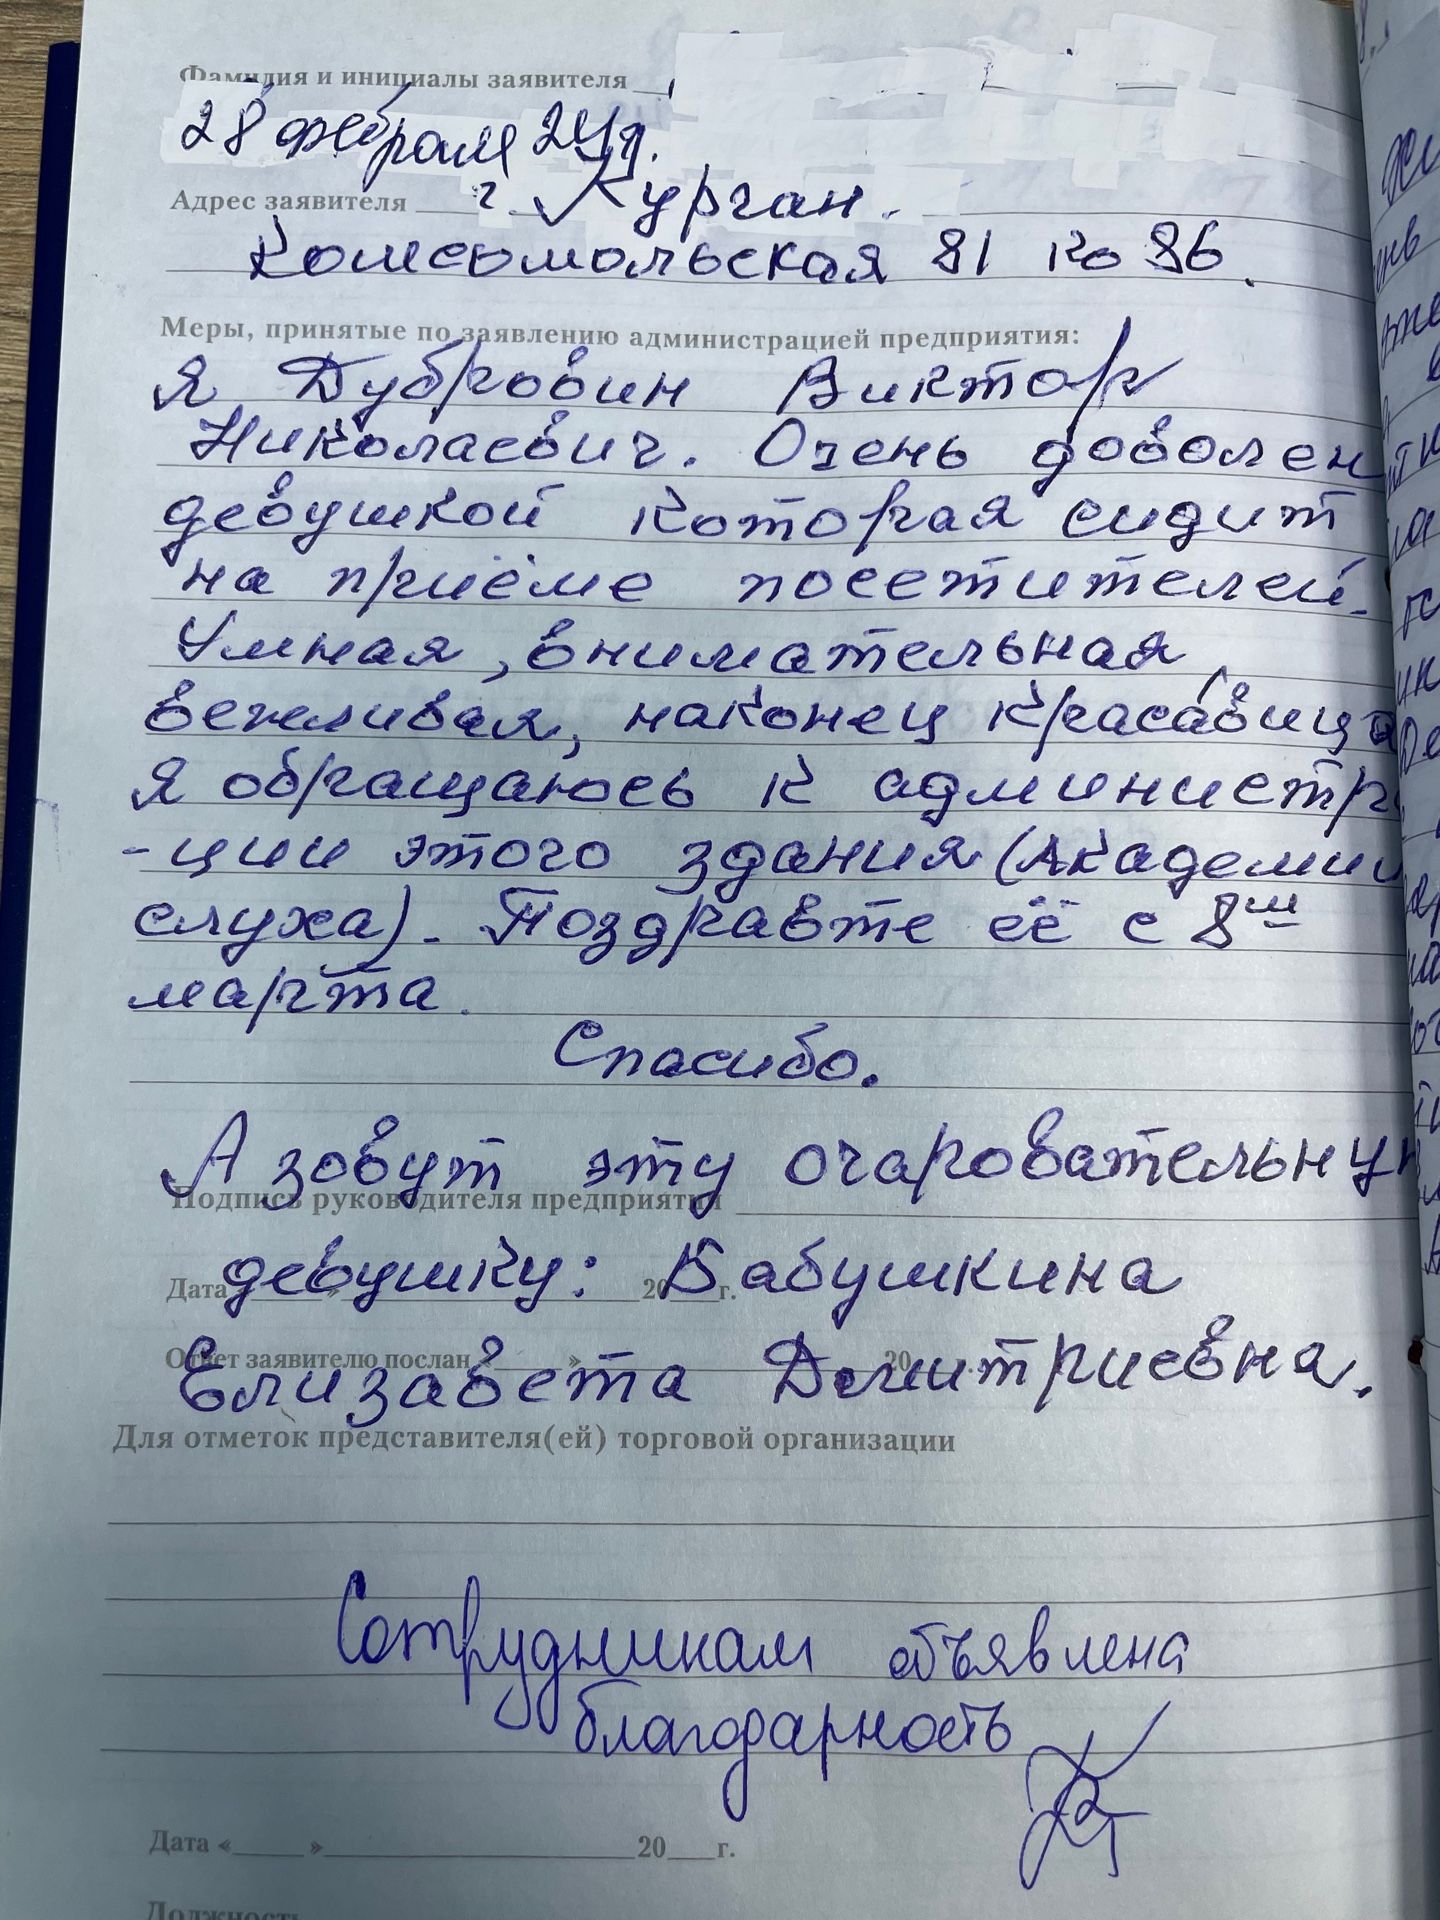 Фамилия и инициалы заявителя
28 февраля 24г.
Адрес заявителя г. Курган.
Комсомольская 81 кв 86.
Меры, принятые по заявлению администрацией предприятия:
Я Дубровин Виктор
Николаевич. Очень доволен
девушкой которая сидит
на приёме посетителей.
Умная, внимательная
вежливая, наконец красавица
Я обращаюсь к администра
-ции этого здания (Академии
слуха). Поздравте её с 8ш
марта.
Спасибо.
А зовут эту очаровательную
Подпись руководителя предприятия
девушку: Бабушкина
Дата « » 20 г.
Ответ заявителю послан « » 20
Елизавета Дмитриевна.
Для отметок представителя(ей) торговой организации
Сотрудникам объявлена
благодарность
Дата « » 20 г.
Должность